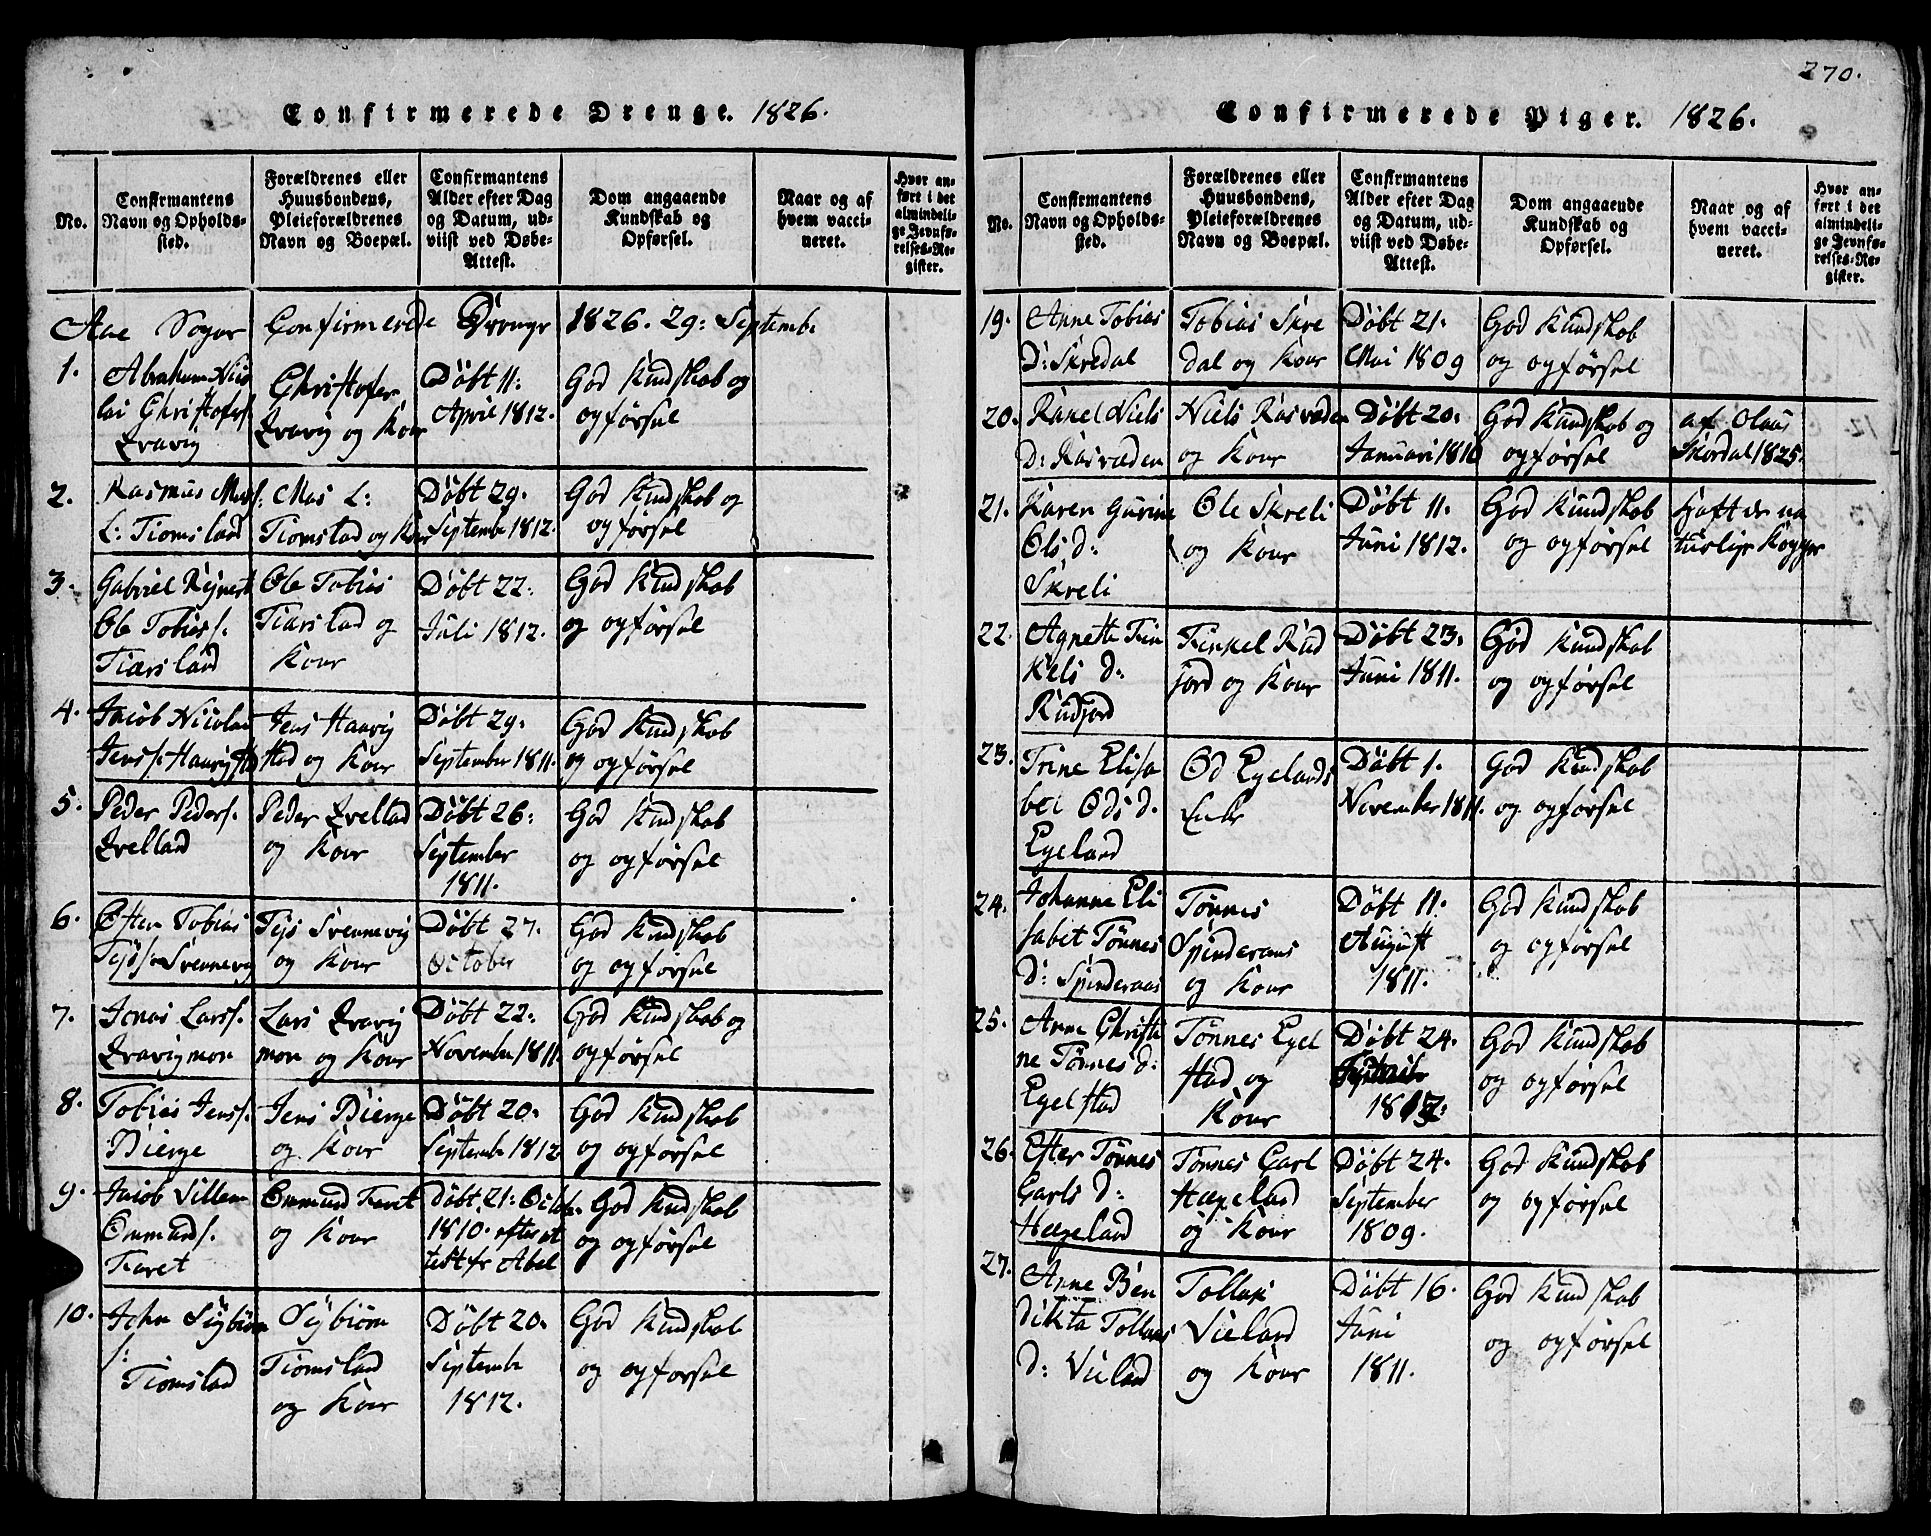 Confirmerede Drenge. 1826.
No.
Confirmantens
Navn og Opholds-
sted.
Forældrenes eller
Huusbondens,
Pleieforældrenes
Navn og Boepæl.
Confirmantens
Alder efter Dag
og Datum, ud-
viist ved Døbe-
Attest.
Dom angaaende
Kundskab og
Opførsel.
Naar og af
hvem vacci-
neret.
Hvor an-
ført i det
almindeli-
ge Jevnfø-
relses-Re-
gister.
Aae Sogns Confirmerede Drenge 1826. 29: Septembe
1.
Abraham Nico
lai Christofers
Qvavig
Christofer
Qvavig og Kone
Døbt 11:
April 1812.
God Kundskab og
opførsel
2.
Rasmus Mas f:
L: Tiomsland
Mas L:
Tiomstad og Kone
Døbt 29.
Septembe 1812.
God Kundskab og
opførsel
3.
Gabriel Rejnert
Ole Tobias f.
Tiærsland
Ole Tobias
Tiærsland og
Kone
Døbt 22:
Juli 1812.
God Kundskab
og opførsel
4.
Jacob Nicolai
Jens f. Haavigstd
Jens Haavig
stad og Kone
Døbt 29.
September 1811.
God Kundskab
og opførsel
5.
Peder Peders f.
Qvelland
Peder Qvelland
og Kone
Døbt 26:
September
1811.
God Kundskab
og opførsel
6.
Often Tobias
Tejs f. Svennevig
Tejs Svennevig
og Kone
Døbt 27.
October
God Kundskab
og opførsel
7.
Jonas Lars f.
Qvavigmon
Lars Qvavig
mon og Kone
Døbt 22:
Novembe 1811.
God Kundskab og
opførsel
8.
Tobias Jens f.
Bierge
Jens Bierge
og Kone
Døbt 20:
Septembe 1812
God Kundskab
og opførsel
9.
Jacob Villem
Onmund f.
Faret
Onmund Faret
og Kone
Døbt 21: Octob.
1810. efter at
test fr Abel
God Kundskab
og opførsel
10.
John Sigbiøn
f:
Tiomstad
Sigbiøn
Tiomsland
og Kone
Døbt 20.
Septembe
1812.
God Kundskab
og opførsel
270.
Confirmerede Piger. 1826.
No.
Confirmantens
Navn og Opholds-
sted.
Forældrenes eller
Huusbondens,
Pleieforældrenes
Navn og Boepæl.
Confirmantens
Alder efter Dag
og Datum, ud-
viist ved Døbe-
Attest.
Dom angaaende
Kundskab og
Opførsel.
Naar og af
hvem vacci-
neret.
Hvor an-
ført i det
almindeli-
ge Jevnfø-
relses-Re-
gister.
19.
Anne Tobias
D: Skredal
Tobias Skre
dal og Kone
Døbt 21.
Mai 1809
God Kundskab
og opførsel
20.
Rakel Niels
D: Rosvæden
Niels Rosvæden
og Kone
Døbt 20.
Januari 1810
God Kundskab og
opførsel
af Olaus
Skordal 1825.
21.
Karen Gurine
Ols d:
Skreli
Ole Skreli
og Kone
Døbt 11.
Juni 1812.
God Kundskab
og opførsel
Haft de na
turlige Kopper
22.
Agnette Tin
kels d:
Rudjord
Tinkel Rud
jord og Kone
Døbt 23.
Juni 1811.
God Kundskab
og opførsel
23.
Trine Elisa
bet Ods d.
Egeland
Od Egelands
Enke
Døbt 1.
November 1811.
God Kundskab
og opførsel
24.
Johanne Eli
sabet Tønnes
D: Spinderaas
Tønnes
Spinderaas
og Kone
Døbt 11.
August
1811.
God Kundskab
og opførsel
25.
Anne Christi
ne Tønnes d:
Egelstad
Tønnes Egel
stad og
Kone
Døbt 24.
God Kundskab
og opførsel
26.
Efter Tønnes
Carls D:
Hægeland
Tønnes Carl
Hægeland
og Kone
Døbt 24.
September
1809.
God Kundskab
og opførsel
27.
Anne Ben
dikta Tollas
d: Vieland
Tollas
Vieland
og Kone
Døbt 16.
Juni
1811.
God Kundskab
og opførsel